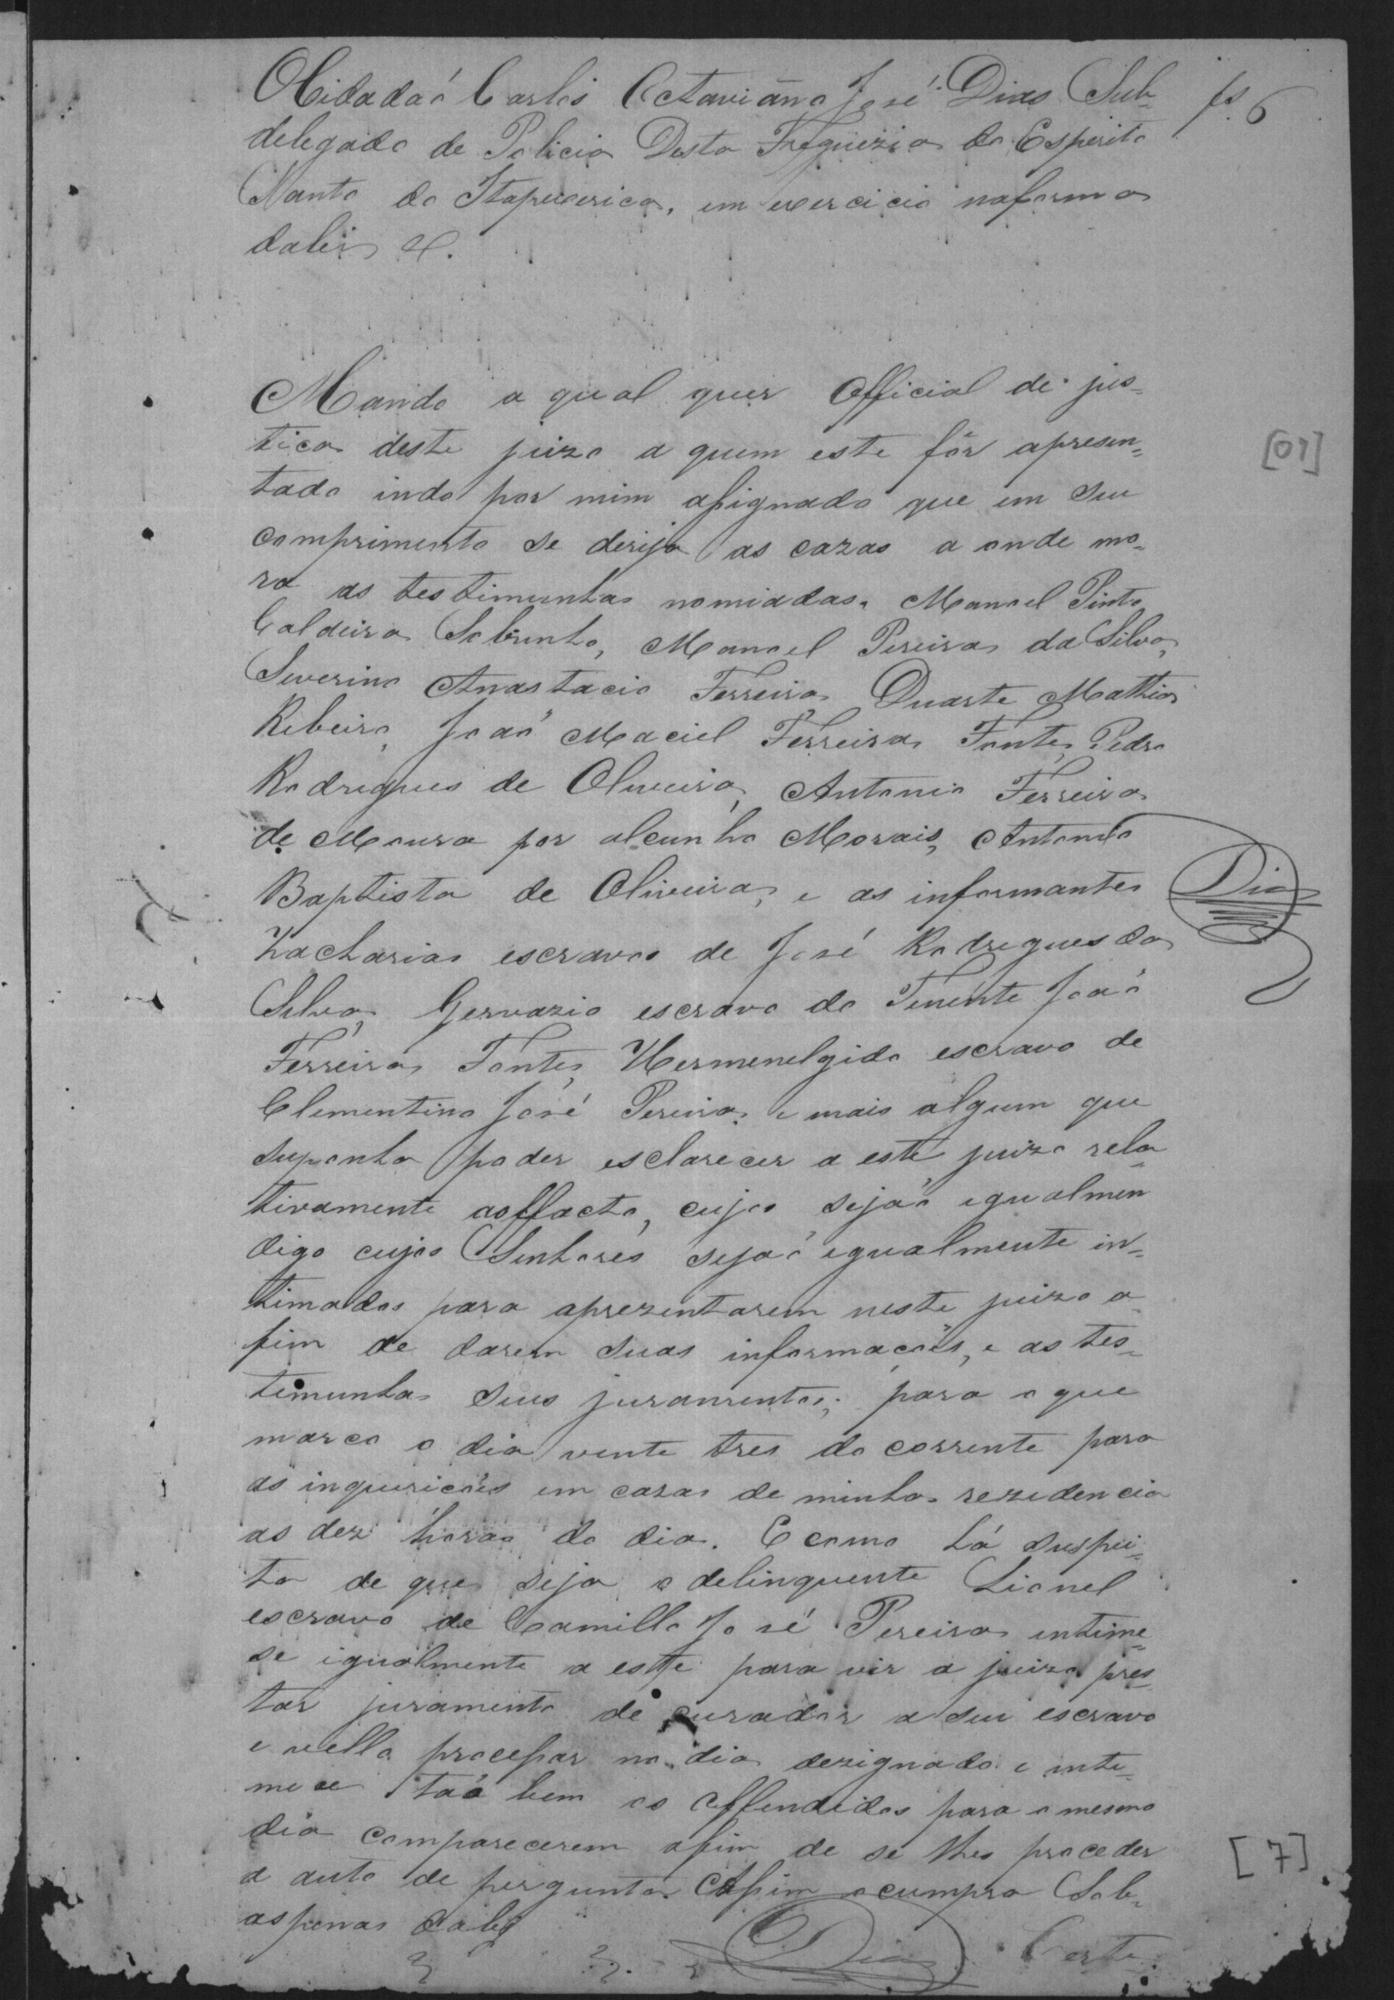 OCidadaõ Carlos Octaviano José Dias Sub-
fs. 6
delegado de Policia Desta Freguezia do Espirito
Santo da Itapecerica, em exercicio naforma
dalei &.
Mando a qual quer Official de jus-
tica deste juizo a quem este fôr apresen-
[07]
tado indo por mim assignado que em seu
comprimento se derija as cazas a onde mo-
ra as testimunhas nomiadas. Manoel Pinto
Caldeira Sobrinho, Manoel Pereira da Silva,
Severino Anastacio Ferreira, Duarte Mathias
Ribeiro, Joaõ Maciel Ferreira Fontes, Pedro
Rodrigues de Oliveira, Antonio Ferreira
de Moura por alcunha Morais, Antonio
Baptista de Oliveira, e as informantes
Dias
Zacharias escravo de José Rodrigues da
Silva, Gervazio escravo do Tenente Joaõ
Ferreira Fontes, Hermenelgido escravo de
Clementino José Pereira, e mais algum que
suponha poder esclarecer a este juizo rela
tivamente aoffacto, cujos sejaõ igualmen
digo cujos Senhores sejaõ igualmente in-
timados para aprezentarem neste juizo a
fim de darem suas informacoẽs, e as tes-
timunhas seus juramentos; para o que
marco o dia vente tres do corrente para
as inquiricoẽs em caza de minha rezidencia
as dez horas do dia. E como há suspei-
ta de que seja o delinquente Lionel
escravo de Camillo José Pereira intime-
se igualmente a este para vir a juizo pres-
tar juramento de curador a seu escravo
e vello processar no dia dezignado e inti-
mese taõ bem os offendidos para o mesmo
dia comparecerem afim de se lhes proceder
a auto de pergunta. Assim o cumpra Sob-
aspenas dalei
[7]
Dias